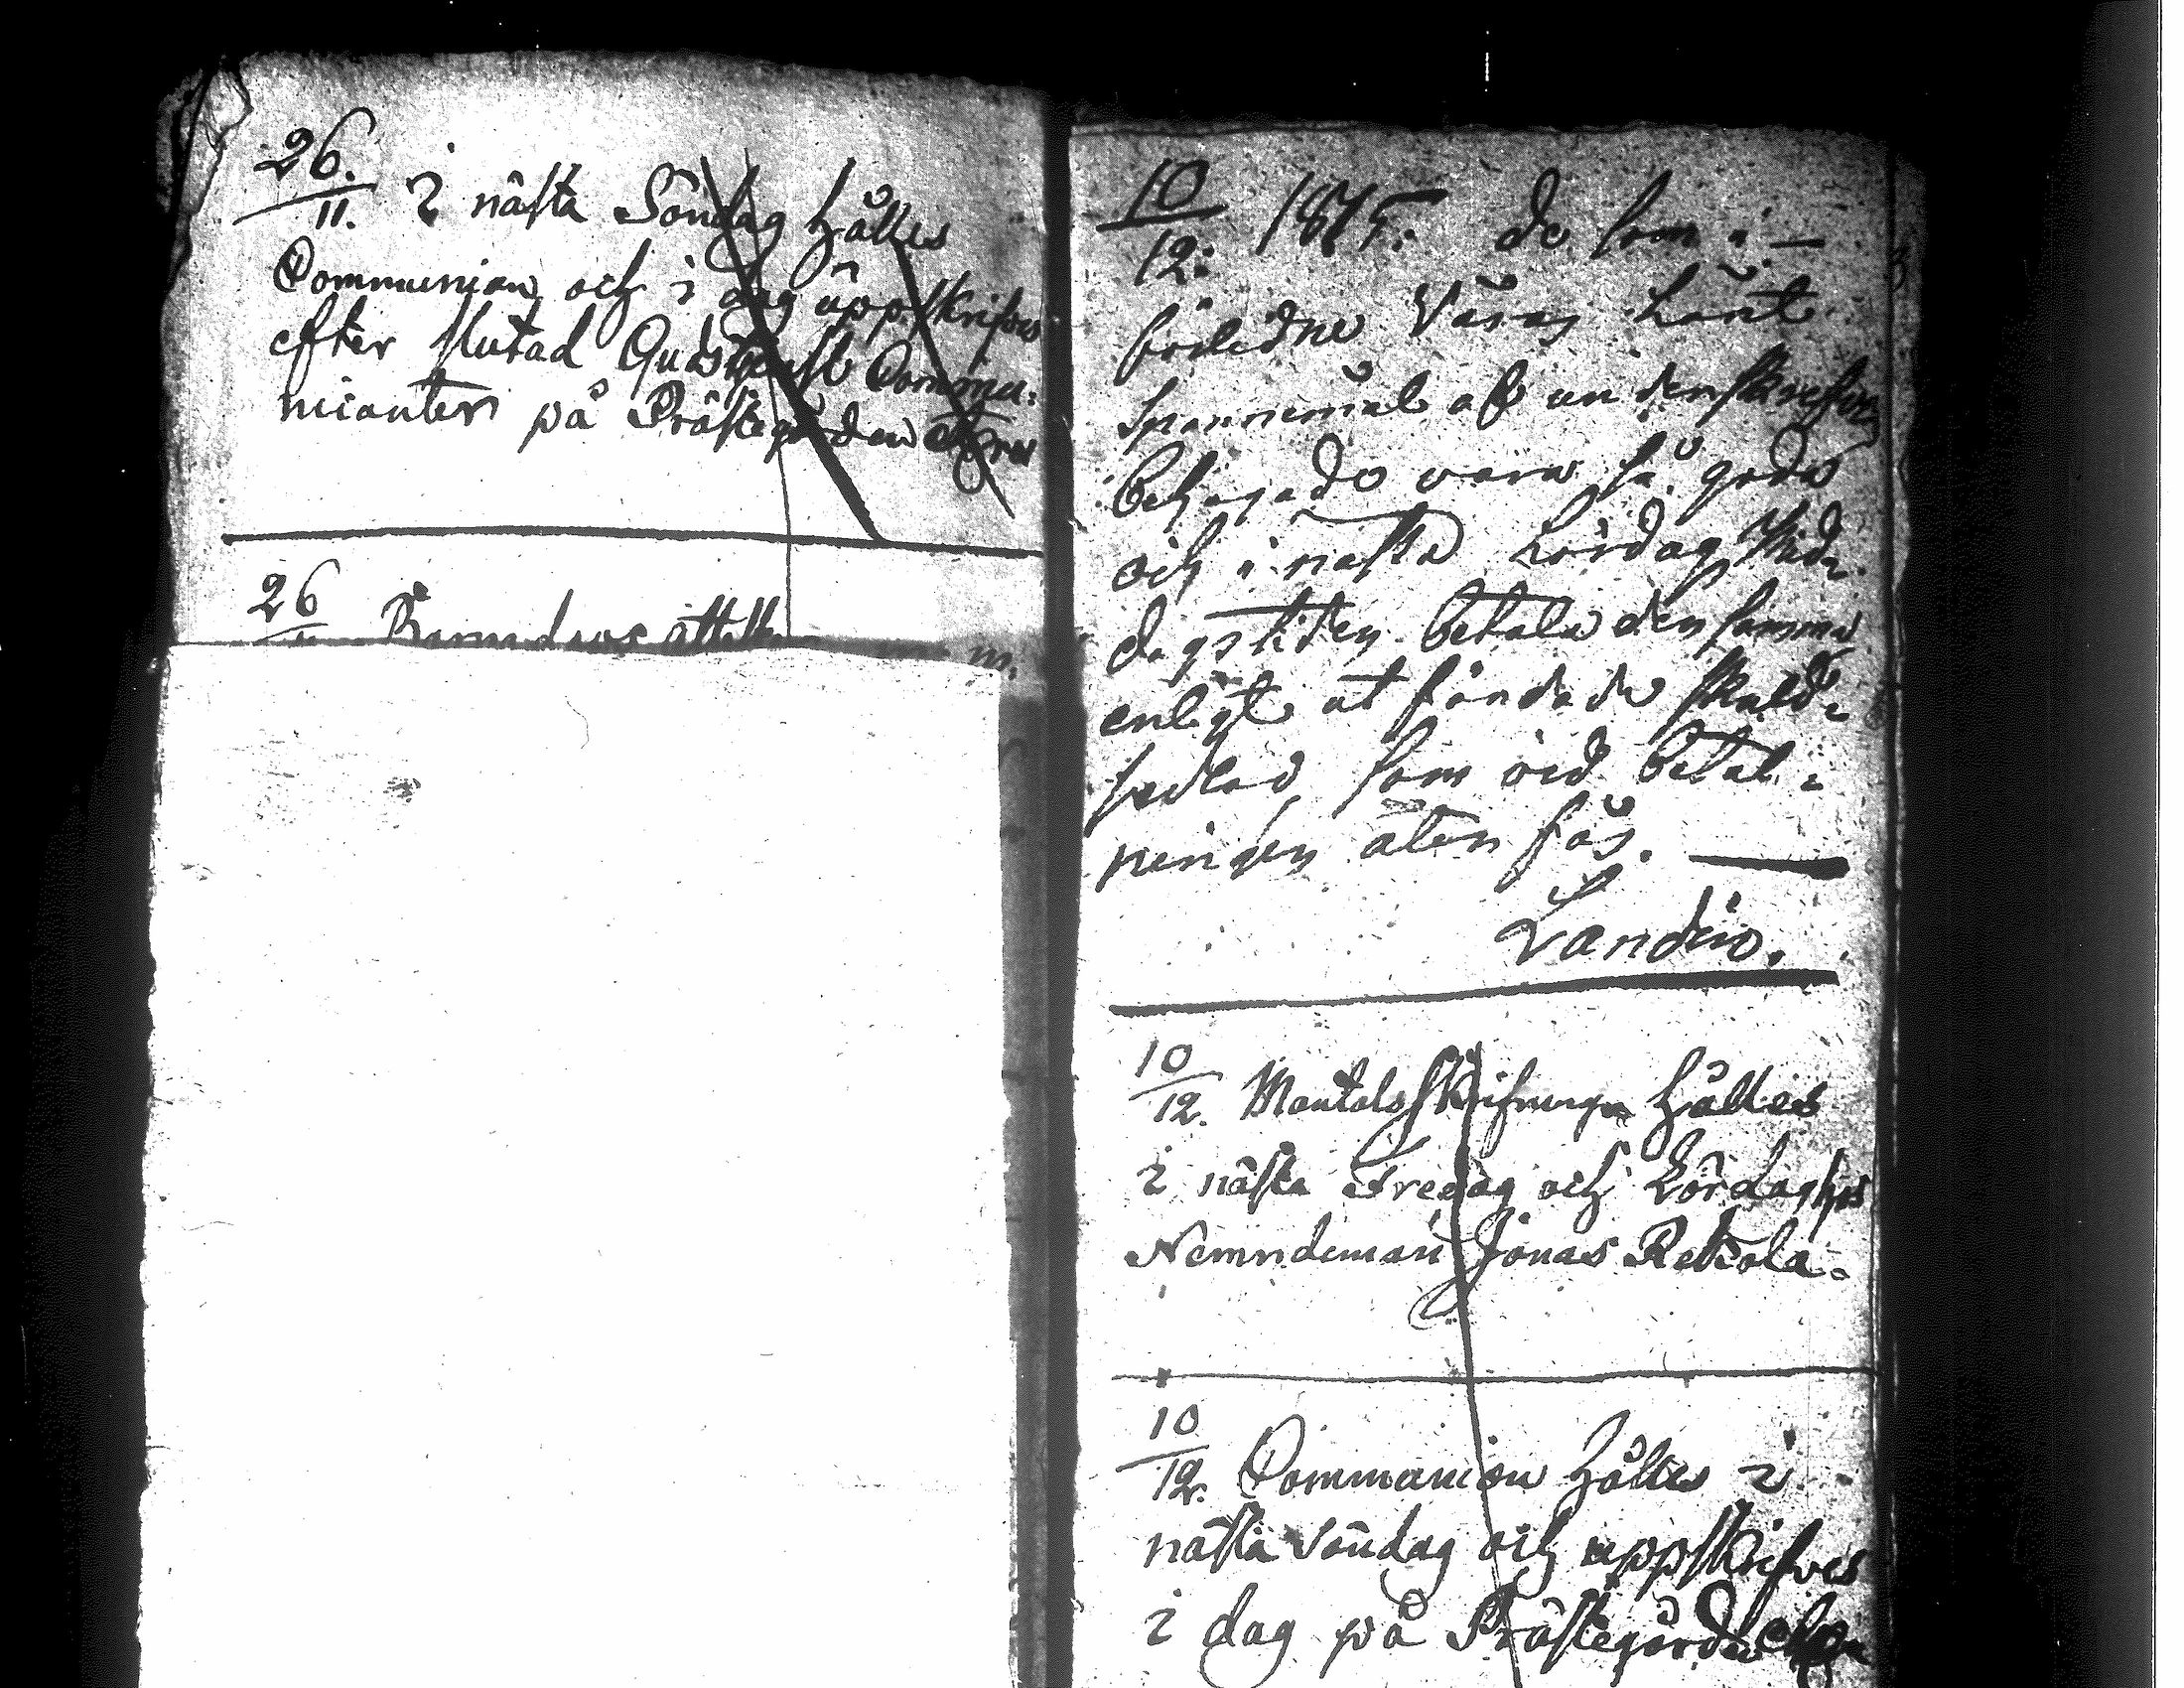 26.
11. I näſta Söndag hålles
Communion och i dag uppſkrifves
efter ſlutad Gudstjenſt Commu:
nicanter på Präſtegården
26
10
12. 1815. De ſom i
förlidne Våras Lånt
Spannemål af undenſkrefven
behagade vara ſå goda
och i näſta Lördag Mid:
dagstiden betala den ſamma
enligt utfärdade ſkuld:
ſedlar ſom vid betal:
ningen åter fås.
Landén.
10
12. Mantalsſkrifningen hålles
i näſta Fredag och Lördag hos
Nemndeman Jonas Rekola.
10
12. Communion hålles i
näſta Söndag och uppſkrifves
i dag på Präſtegården